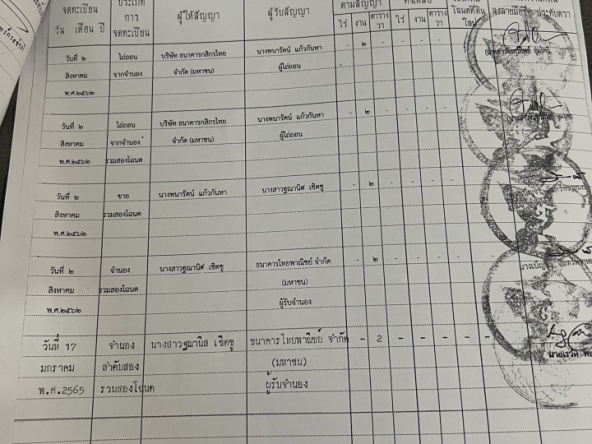 จดทะเบียน ประเภท ผู้ให้สัญญา ผู้รับสัญญา ตามสัญญา
วัน เดือน ปี การ ไร่ งาน ตาราง ไร่ งาน ตาราง โฉนดที่ดิน
จดทะเบียน วา วา ใหม่
วันที่ ๒ ไถ่ถอน บริษัท ธนาคารกสิกรไทย นางพนารัตน์ แก้วกันหา - ๒ - - - -
สิงหาคม จากจำนอง จำกัด (มหาชน) ผู้ไถ่ถอน
พ.ศ.๒๕๖๒
วันที่ ๒ ไถ่ถอน บริษัท ธนาคารกสิกรไทย นางพนารัตน์ แก้วกันหา - ๒ - - - -
สิงหาคม จากจำนอง จำกัด (มหาชน) ผู้ไถ่ถอน
พ.ศ.๒๕๖๒ รวมสองโฉนด
วันที่ ๒ ขาย นางพนารัตน์ แก้วกันหา นางสาวฐณานิศ เชิดชู - ๒ - - - -
สิงหาคม รวมสองโฉนด
พ.ศ.๒๕๖๒
วันที่ ๒ จำนอง นางสาวฐณานิศ เชิดชู ธนาคารไทยพาณิชย์ จำกัด - ๒ - - - -
สิงหาคม รวมสองโฉนด (มหาชน)
พ.ศ.๒๕๖๒ ผู้รับจำนอง
วันที่ 17 จำนอง นางสาวฐณานิศ เชิดชู ธนาคารไทยพาณิชย์ จำกัด - 2 - - - - -
มกราคม ลำดับสอง (มหาชน)
พ.ศ.2565 รวมสองโฉนด ผู้รับจำนอง